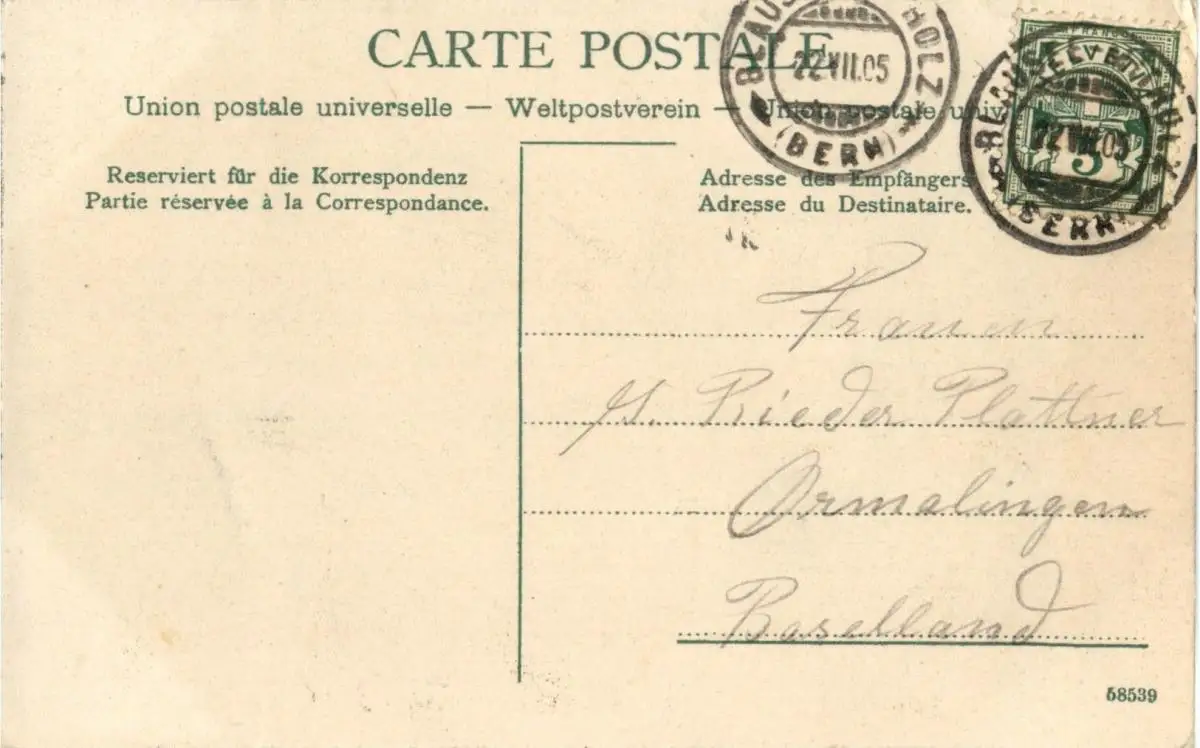 CARTE POSTALE
Union postale universelle — Weltpostverein — Union postale univ
Reserviert für die Korrespondenz
Partie réservée à la Correspondance.
Adresse des Empfängers
Adresse du Destinataire.
BLAUS HOLZ
22.VII.05
(BERN)
FRANCO
HELVETIA
5
BLAUS HOLZ
22.VII.05
(BERN)
Frauen
G. Rieder Plattner
Ormalingen
Baselland
58539